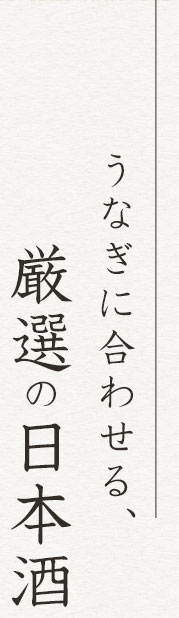 うなぎに合わせる、
厳選の日本酒